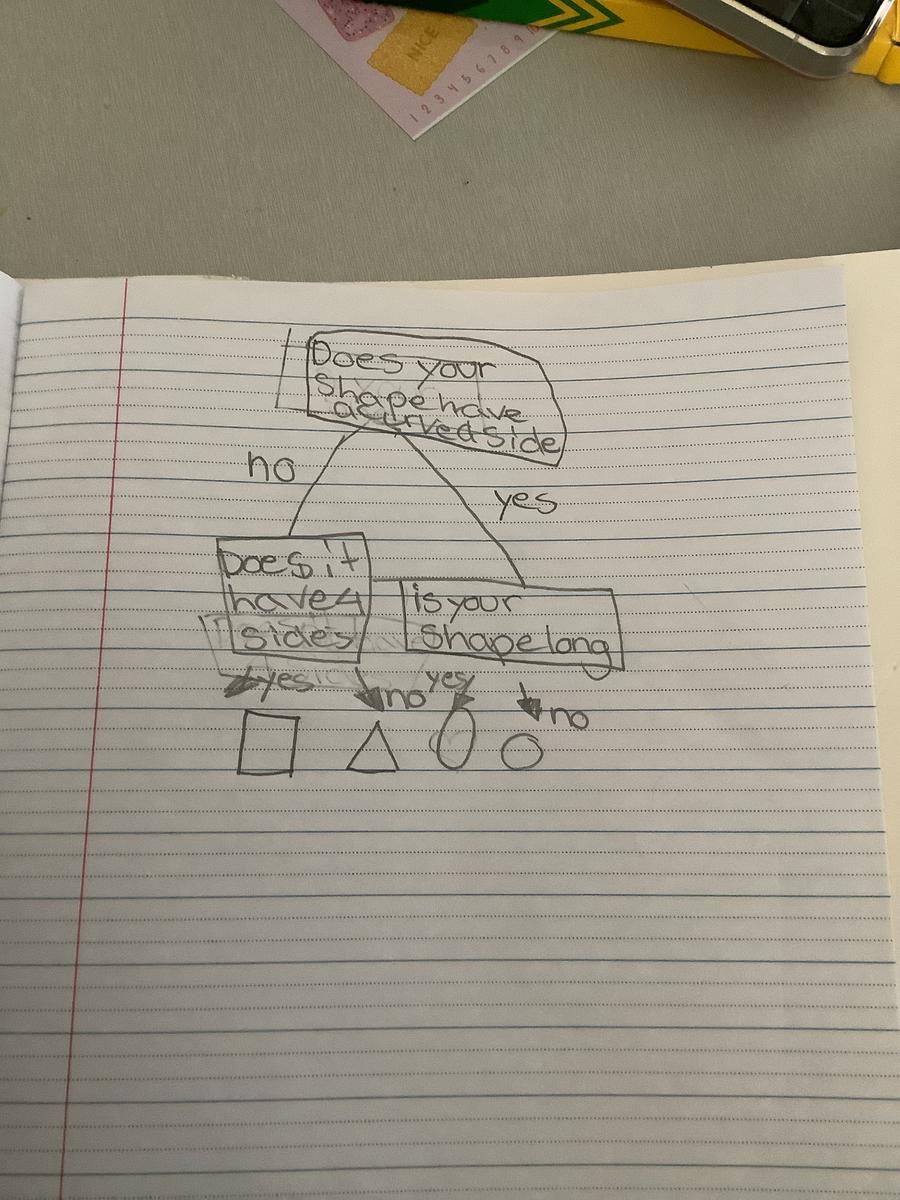 NICE
1 2 3 4 5 6 7 8 9
Does your
Shape have
a curved Side
no
yes
Does it
have 4
sides
is your
Shape long
yes
no
yes
no